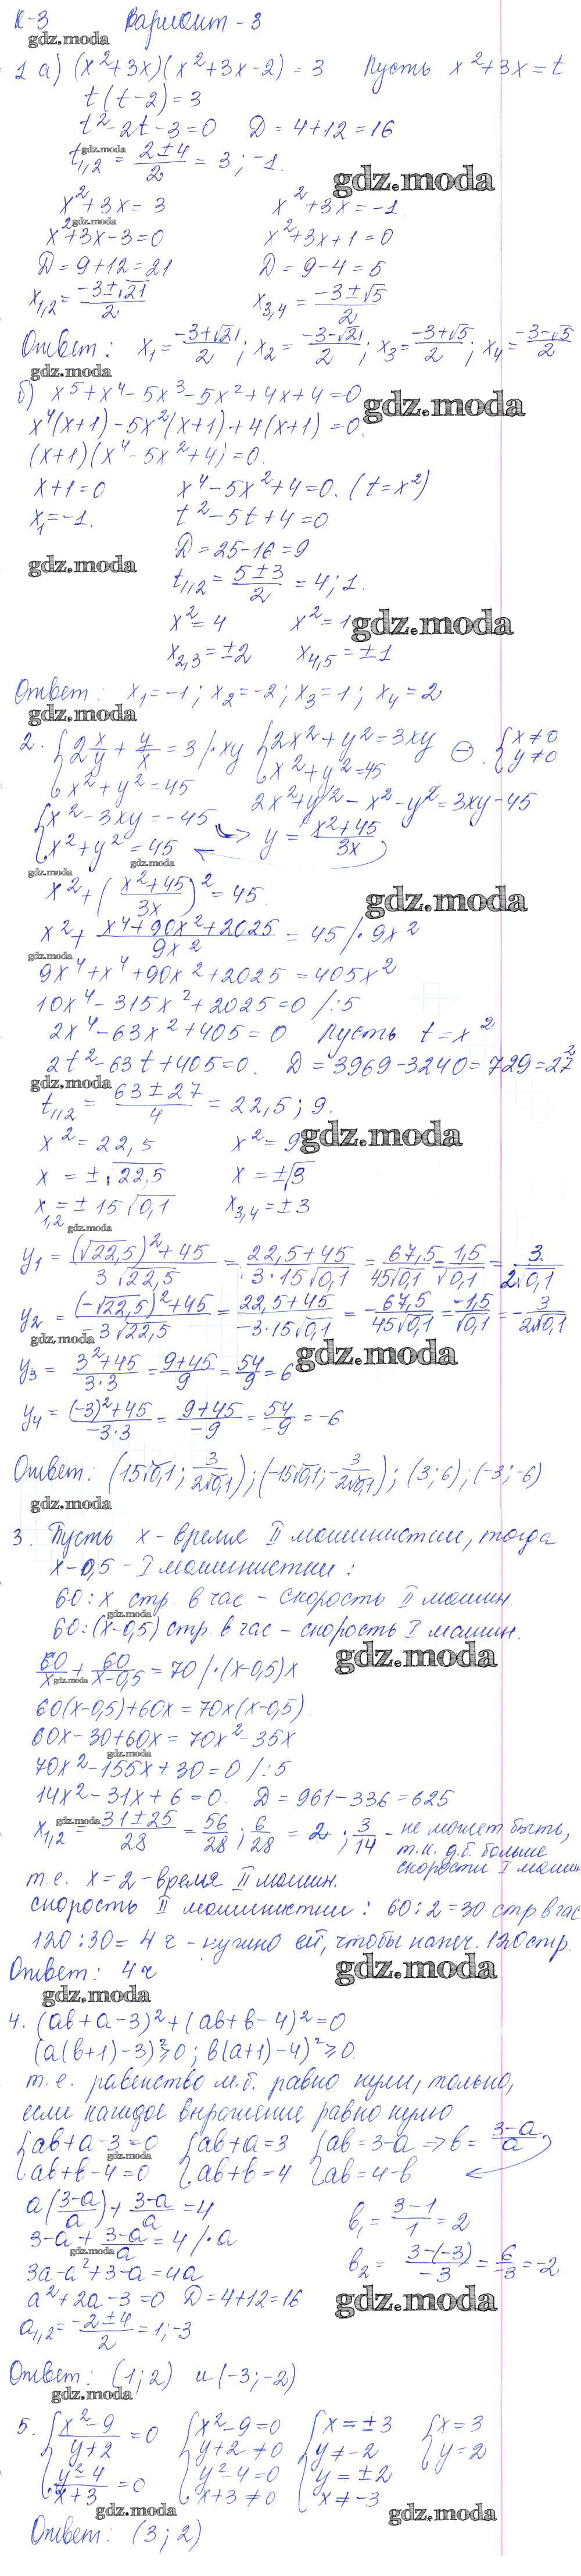 К-3 Вариант-3
gdz.moda
1 а) (x²+3x)(x²+3x-2) = 3 Пусть x²+3x=t
t(t-2)=3
t²-2t-3=0 Д=4+12=16
t₁,₂ = (2±4)/2 = 3; -1.
gdz.moda
gdz.moda
x²+3x=3 x²+3x=-1
gdz.moda
x²+3x-3=0 x²+3x+1=0
Д=9+12=21 Д=9-4=5
x₁,₂= (-3±√21)/2 x₃,₄= (-3±√5)/2
Ответ: x₁= (-3+√21)/2; x₂= (-3-√21)/2; x₃= (-3+√5)/2; x₄= (-3-√5)/2
gdz.moda
б) x⁵+x⁴-5x³-5x²+4x+4=0
gdz.moda
x⁴(x+1)-5x²(x+1)+4(x+1)=0.
(x+1)(x⁴-5x²+4)=0.
x+1=0 x⁴-5x²+4=0. (t=x²)
x₁=-1. t²-5t+4=0
Д=25-16=9
gdz.moda
t₁,₂= (5±3)/2 = 4; 1.
x²=4 x²=1
gdz.moda
x₂,₃=±2 x₄,₅=±1
Ответ: x₁=-1; x₂=-2; x₃=1; x₄=2
gdz.moda
2. {2x/y + y/x = 3 /·xy {2x²+y²=3xy ⊖. {x≠0
x²+y²=45 x²+y²=45 y≠0
2x²+y²-x²-y²=3xy-45
{x²-3xy=-45 → y= (x²+45)/3x
x²+y²=45
gdz.moda
gdz.moda
x²+((x²+45)/3x)²=45
gdz.moda
x²+ (x⁴+90x²+2025)/9x² = 45 /·9x²
gdz.moda
9x⁴+x⁴+90x²+2025=405x²
10x⁴-315x²+2025=0 /:5
2x⁴-63x²+405=0 Пусть t=x²
2t²-63t+405=0. Д=3969-3240=729=27²
gdz.moda
t₁,₂= (63±27)/4 = 22,5; 9.
gdz.moda
x²=22,5 x²=9
x=±√22,5 x=±√3
x₁,₂=±15√0,1 x₃,₄=±3
gdz.moda
y₁= ((√22,5)²+45)/(3√22,5) = (22,5+45)/(3·15√0,1) = 67,5/(45√0,1) = 1,5/√0,1 = 3/(2√0,1)
y₂= ((-√22,5)²+45)/(-3√22,5) = (22,5+45)/(-3·15√0,1) = -67,5/(45√0,1) = -1,5/√0,1 = -3/(2√0,1)
gdz.moda
gdz.moda
y₃= (3²+45)/(3·3) = (9+45)/9 = 54/9 = 6
y₄= ((-3)²+45)/(-3·3) = (9+45)/-9 = 54/-9 = -6
Ответ: (15√0,1; 3/(2√0,1)); (-15√0,1; -3/(2√0,1)); (3;6); (-3;-6)
gdz.moda
3. Пусть x - время II машинистки, тогда
x-0,5 - I машинистки:
60:x стр. в час - скорость II машин
gdz.moda
60:(x-0,5) стр. в час - скорость I машин.
gdz.moda
60/x + 60/(x-0,5) = 70 /·(x-0,5)x
gdz.moda
60(x-0,5)+60x=70x(x-0,5)
60x-30+60x=70x²-35x
gdz.moda
70x²-155x+30=0 /:5
14x²-31x+6=0. Д=961-336=625
gdz.moda
x₁,₂= (31±25)/28 = 56/28; 6/28 = 2; 3/14 - не может быть,
т.к. д.б. больше
скорости I машин
т.е. x=2 - время II машин.
скорость II машинистки: 60:2=30 стр в час
120:30=4 ч - нужно ей, чтобы напеч. 120 стр.
gdz.moda
Ответ: 4ч
gdz.moda
4. (ab+a-3)²+(ab+b-4)²=0
(a(b+1)-3)²≥0; b(a+1)-4)²≥0.
т.е. равенство м.б. равно нулю, только,
если каждое выражение равно нулю
{ab+a-3=0 {ab+a=3 {ab=3-a ⇒ b= (3-a)/a
gdz.moda
ab+b-4=0 ab+b=4 ab=4-b
a((3-a)/a)+ (3-a)/a =4 b₁= (3-1)/1 = 2
3-a+ (3-a)/a = 4 /·a
gdz.moda
b₂= (3-(-3))/-3 = 6/-3 = -2
3a-a²+3-a=4a
a²+2a-3=0 Д=4+12=16
gdz.moda
a₁,₂= (-2±4)/2 = 1; -3
Ответ: (1;2) и (-3;-2)
gdz.moda
5. {(x²-9)/(y+2) =0 {x²-9=0 {x=±3 {x=3
y+2≠0 y≠-2 y=2
(y²-4)/(x+3) =0 y²-4=0 y=±2
x+3≠0 x≠-3
gdz.moda
gdz.moda
Ответ: (3;2)